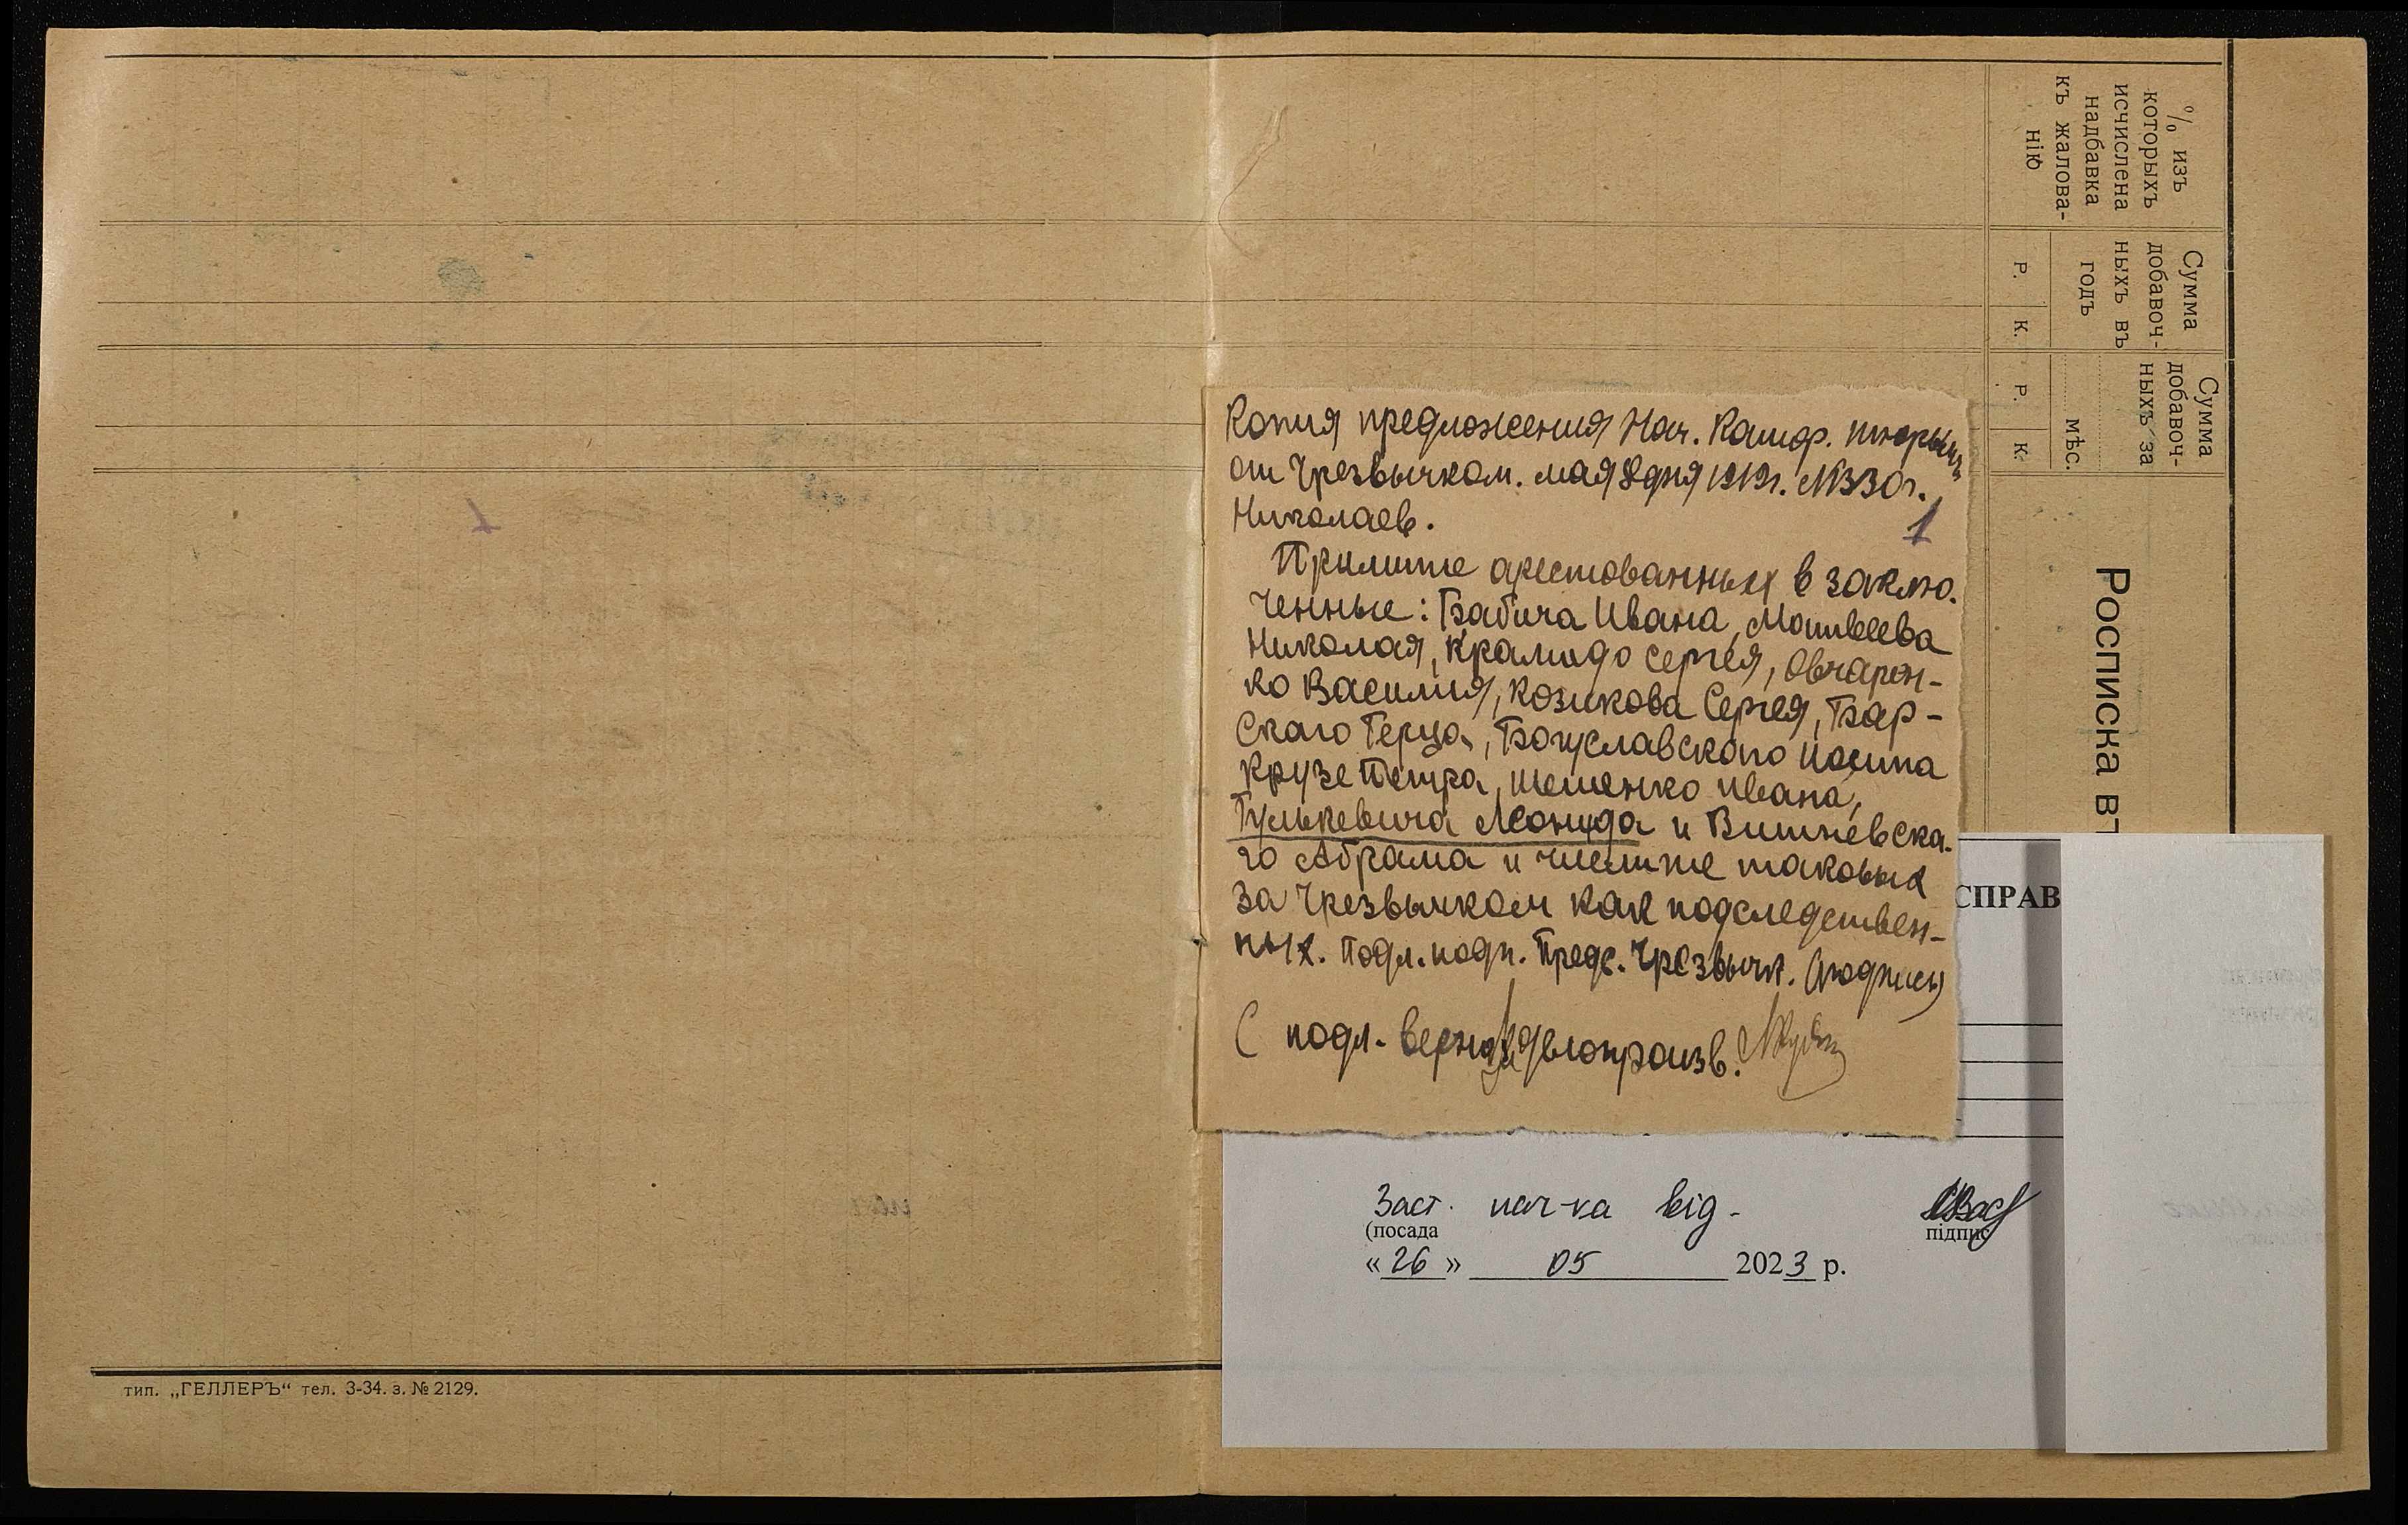 % изъ
которыхъ
исчислена
надбавка
къ жалова-
нію
Сумма
добавоч-
ныхъ въ
годъ
Р. К.
Сумма
добавоч-
ныхъ за
мѣс.
Р. К.
Росписка въ
Копия предложения Нач. Каторж. тюрьмы
от Чрезвычком. мая 8 дня 1919г. №330 г.
Николаев.
1
Примите арестованных в заклю-
ченные: Бабича Ивана, Матвеева
Николая, Сергея, Овчарен-
ко Василия, Козикова Сергея, Бар-
скаго Герца, Богуславского Иосипа
Крузе Петра, Шешенко Ивана,
Гулькевича Леонида и Вишневска-
го Абрама и числите таковых
за Чрезвычком как подследствен-
ных. Подл. подп. Предс. Чрезвычк. (подпись)
С подл. верно: делопроизв.
СПРАВ
Заст. нач-ка від-
(посада
підпис
« 26 » 05 2023 р.
тип. „ГЕЛЛЕРЪ“ тел. 3-34. з. № 2129.